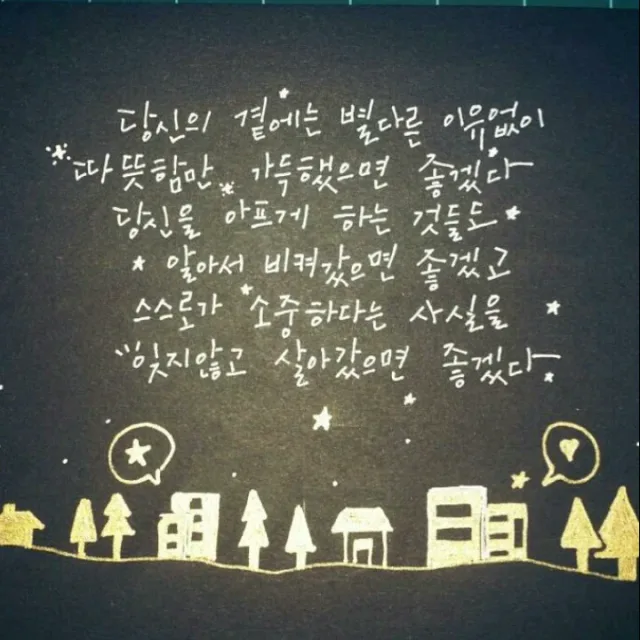 당신의 곁에는 별다른 이유없이
따뜻함만 가득했으면 좋겠다
당신을 아프게 하는 것들도
알아서 비켜갔으면 좋겠고
스스로가 소중하다는 사실을
잊지않고 살아갔으면 좋겠다